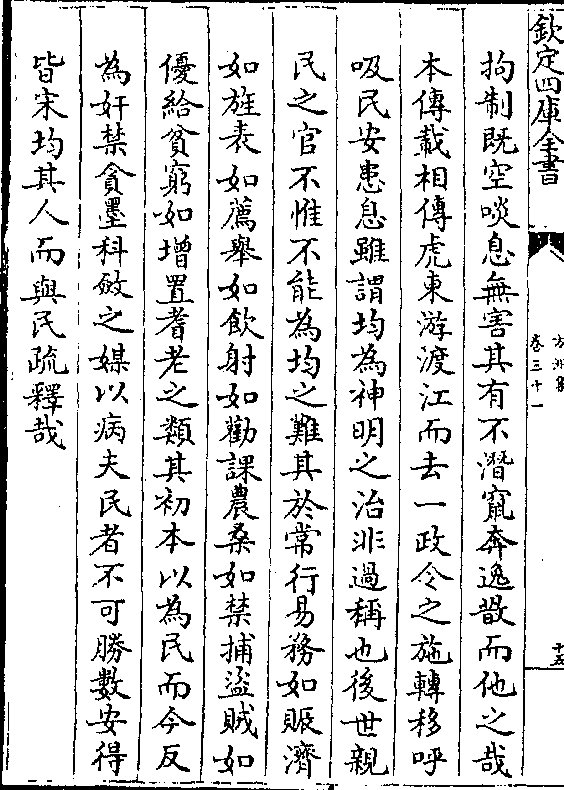 欽定四庫全書
卷三十一
十五
拘制既空啖息無害其有不潛竄奔逸散而他之哉
本傳載相傳虎東游渡江而去一政令之施轉移呼
吸民安患息雖謂均為神明之治非過稱也後世親
民之官不惟不能為均之難其於常行易務如賑濟
如旌表如薦舉如飲射如勸課農桑如禁捕盜賊如
優給貧窮如增置耆老之類其初本以為民而今反
為奸禁貪墨科斂之媒以病夫民者不可勝數安得
皆宋均其人而與民疏釋哉